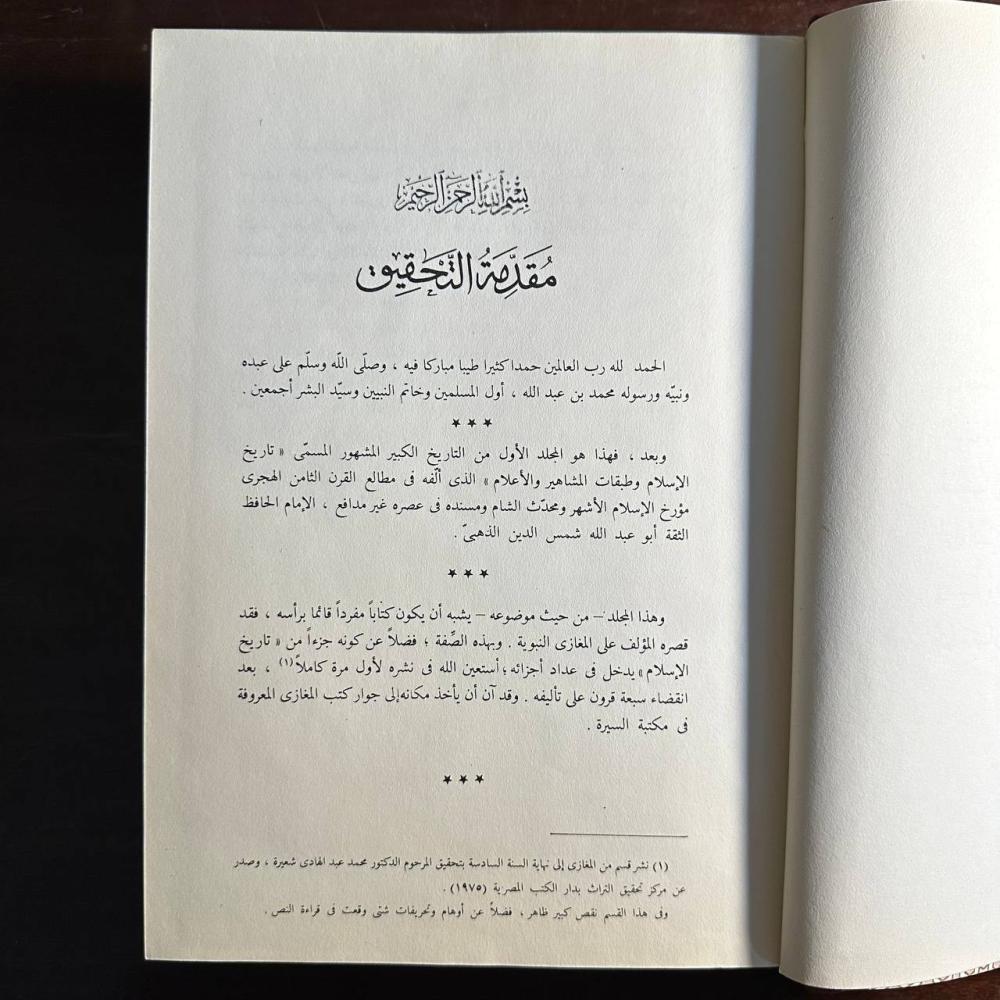 بِسْمِ اللهِ الرَّحْمَنِ الرَّحِيمِ
مُقَدِّمَةُ التَّحْقِيق
الحمد لله رب العالمين حمدا كثيرا طيبا مباركا فيه ، وصلّى اللّه وسلّم على عبده
ونبيّه ورسوله محمد بن عبد الله ، أول المسلمين وخاتم النبيين وسيّد البشر أجمعين .
★ ★ ★
وبعد ، فهذا هو المجلد الأول من التاريخ الكبير المشهور المسمّى « تاريخ
الإسلام وطبقات المشاهير والأعلام » الذى ألّفه فى مطالع القرن الثامن الهجرى
مؤرخ الإسلام الأشهر ومحدّث الشام ومسنده فى عصره غير مدافع ، الإمام الحافظ
الثقة أبو عبد الله شمس الدين الذهبىّ .
★ ★ ★
وهذا المجلد – من حيث موضوعه – يشبه أن يكون كتاباً مفرداً قائما برأسه ، فقد
قصره المؤلف على المغازى النبوية . وبهذه الصِّفة ؛ فضلاً عن كونه جزءاً من « تاريخ
الإسلام » يدخل فى عداد أجزائه ؛ أستعين الله فى نشره لأول مرة كاملاً (١) ، بعد
انقضاء سبعة قرون على تأليفه . وقد آن أن يأخذ مكانه إلى جوار كتب المغازى المعروفة
فى مكتبة السيرة .
★ ★ ★
(١) نشر قسم من المغازى إلى نهاية السنة السادسة بتحقيق المرحوم الدكتور محمد عبد الهادى شعيرة ، وصدر
عن مركز تحقيق التراث بدار الكتب المصرية (١٩٧٥) .
وفى هذا القسم نقص كبير ظاهر ، فضلاً عن أوهام وتحريفات شتى وقعت فى قراءة النص .